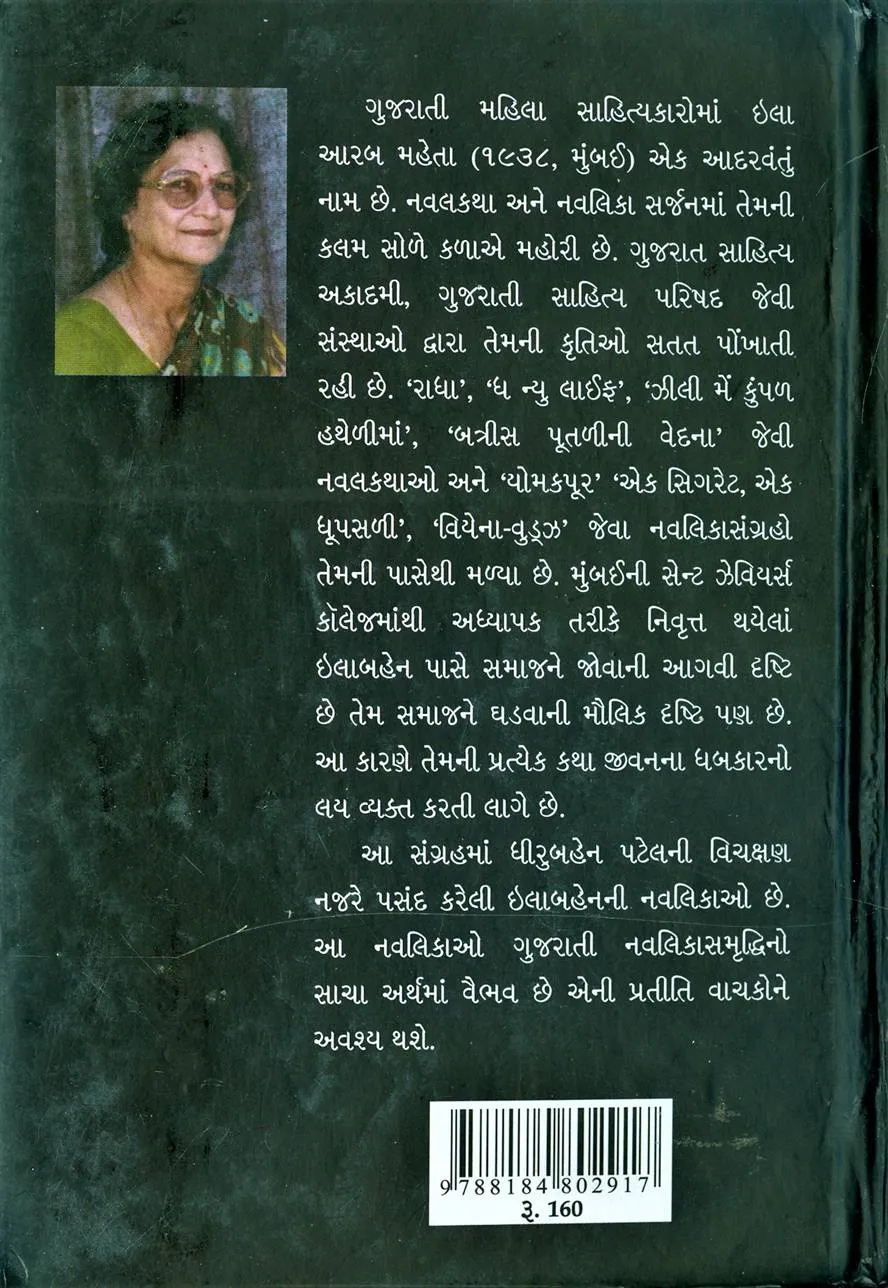 ગુજરાતી મહિલા સાહિત્યકારોમાં ઇલા
આરબ મહેતા (૧૯૩૮, મુંબઈ) એક આદરવંતું
નામ છે. નવલકથા અને નવલિકા સર્જનમાં તેમની
કલમ સોળે કળાએ મહોરી છે. ગુજરાત સાહિત્ય
અકાદમી, ગુજરાતી સાહિત્ય પરિષદ જેવી
સંસ્થાઓ દ્વારા તેમની કૃતિઓ સતત પોંખાતી
રહી છે. ‘રાધા’, ‘ધ ન્યુ લાઈફ’, ‘ઝીલી મેં કુંપળ
હથેળીમાં’, ‘બત્રીસ પૂતળીની વેદના’ જેવી
નવલકથાઓ અને ‘યોમકપૂર’ ‘એક સિગરેટ, એક
ધૂપસળી’, ‘વિયેના-વુડ્ઝ’ જેવા નવલિકાસંગ્રહો
તેમની પાસેથી મળ્યા છે. મુંબઈની સેન્ટ ઝેવિયર્સ
કૉલેજમાંથી અધ્યાપક તરીકે નિવૃત્ત થયેલાં
ઇલાબહેન પાસે સમાજને જોવાની આગવી દૃષ્ટિ
છે તેમ સમાજને ઘડવાની મૌલિક દૃષ્ટિ પણ છે.
આ કારણે તેમની પ્રત્યેક કથા જીવનના ધબકારનો
લય વ્યક્ત કરતી લાગે છે.
આ સંગ્રહમાં ધીરુબહેન પટેલની વિચક્ષણ
નજરે પસંદ કરેલી ઇલાબહેનની નવલિકાઓ છે.
આ નવલિકાઓ ગુજરાતી નવલિકાસમૃદ્ધિનો
સાચા અર્થમાં વૈભવ છે એની પ્રતીતિ વાચકોને
અવશ્ય થશે.
9 788184 802917
રૂ. 160